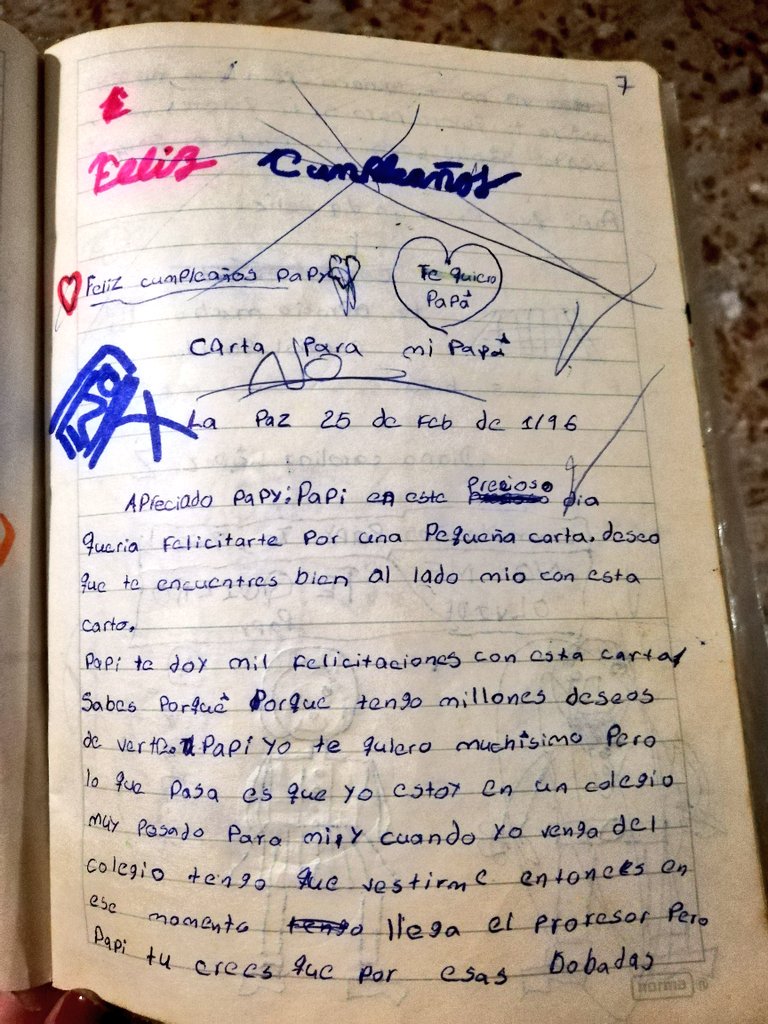 7
Feliz Cumpleaños
Feliz cumpleaños papy
Te quiero
Papá
Carta Para mi Papá
No
La Paz 25 de Feb de 1196
Apreciado Papy: Papi en este Precioso dia
queria Felicitarte Por una Pequeña carta. deseo
que te encuentres bien al lado mio con esta
carta.
Papi te doy mil Felicitaciones con esta carta
Sabes Porqué Porque tengo millones deseos
de verte. Papi Yo te quiero muchísimo Pero
lo que Pasa es que Yo estoy en un colegio
muy Pesado Para mi, y cuando Yo vengo del
colegio tengo que vestirme entonces en
ese momento tengo llega el Profesor Pero
Papi tu crees que Por esas bobadas